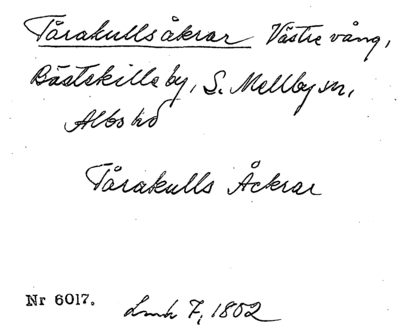 Tårakullsåkrar Västre vång,
Bästekille by, S. Mellby sn,
Albo hd
Tårakulls Åckrar
Nr 6017. Lmh 7, 1802